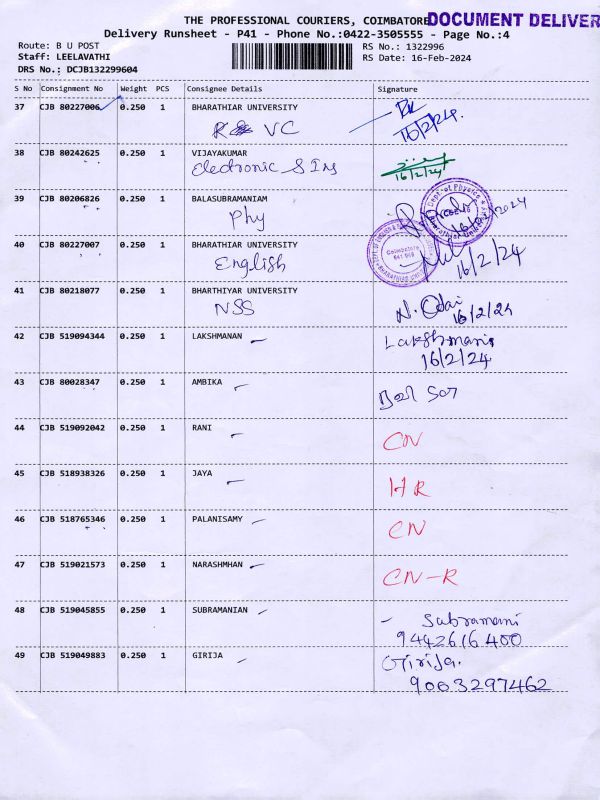 THE PROFESSIONAL COURIERS, COIMBATORE
DOCUMENT DELIVER
Delivery Runsheet - P41 - Phone No.:0422-3505555 - Page No.:4
Route: B U POST
RS No.: 1322996
Staff: LEELAVATHI
RS Date: 16-Feb-2024
DRS No.: DCJB132299604
S No Consignment No Weight PCS Consignee Details Signature
37 CJB 80227006 0.250 1 BHARATHIAR UNIVERSITY
VC 16/2/24.
38 CJB 80242625 0.250 1 VIJAYAKUMAR
Electronic & Ins 16/2/24
39 CJB 80206826 0.250 1 BALASUBRAMANIAM
Phy
40 CJB 80227007 0.250 1 BHARATHIAR UNIVERSITY
English 16/2/24
Coimbatore
641 046
41 CJB 80218077 0.250 1 BHARTHIYAR UNIVERSITY
NSS N. Odai 16/2/24
42 CJB 519094344 0.250 1 LAKSHMANAN Lakshmanan
16/2/24
43 CJB 80028347 0.250 1 AMBIKA
44 CJB 519092042 0.250 1 RANI
CN
45 CJB 518938326 0.250 1 JAYA
HR
46 CJB 518765346 0.250 1 PALANISAMY
CN
47 CJB 519021573 0.250 1 NARASHMHAN
CN-R
48 CJB 519045855 0.250 1 SUBRAMANIAN
Subramani
9442616400
49 CJB 519049883 0.250 1 GIRIJA Girija.
9003297462